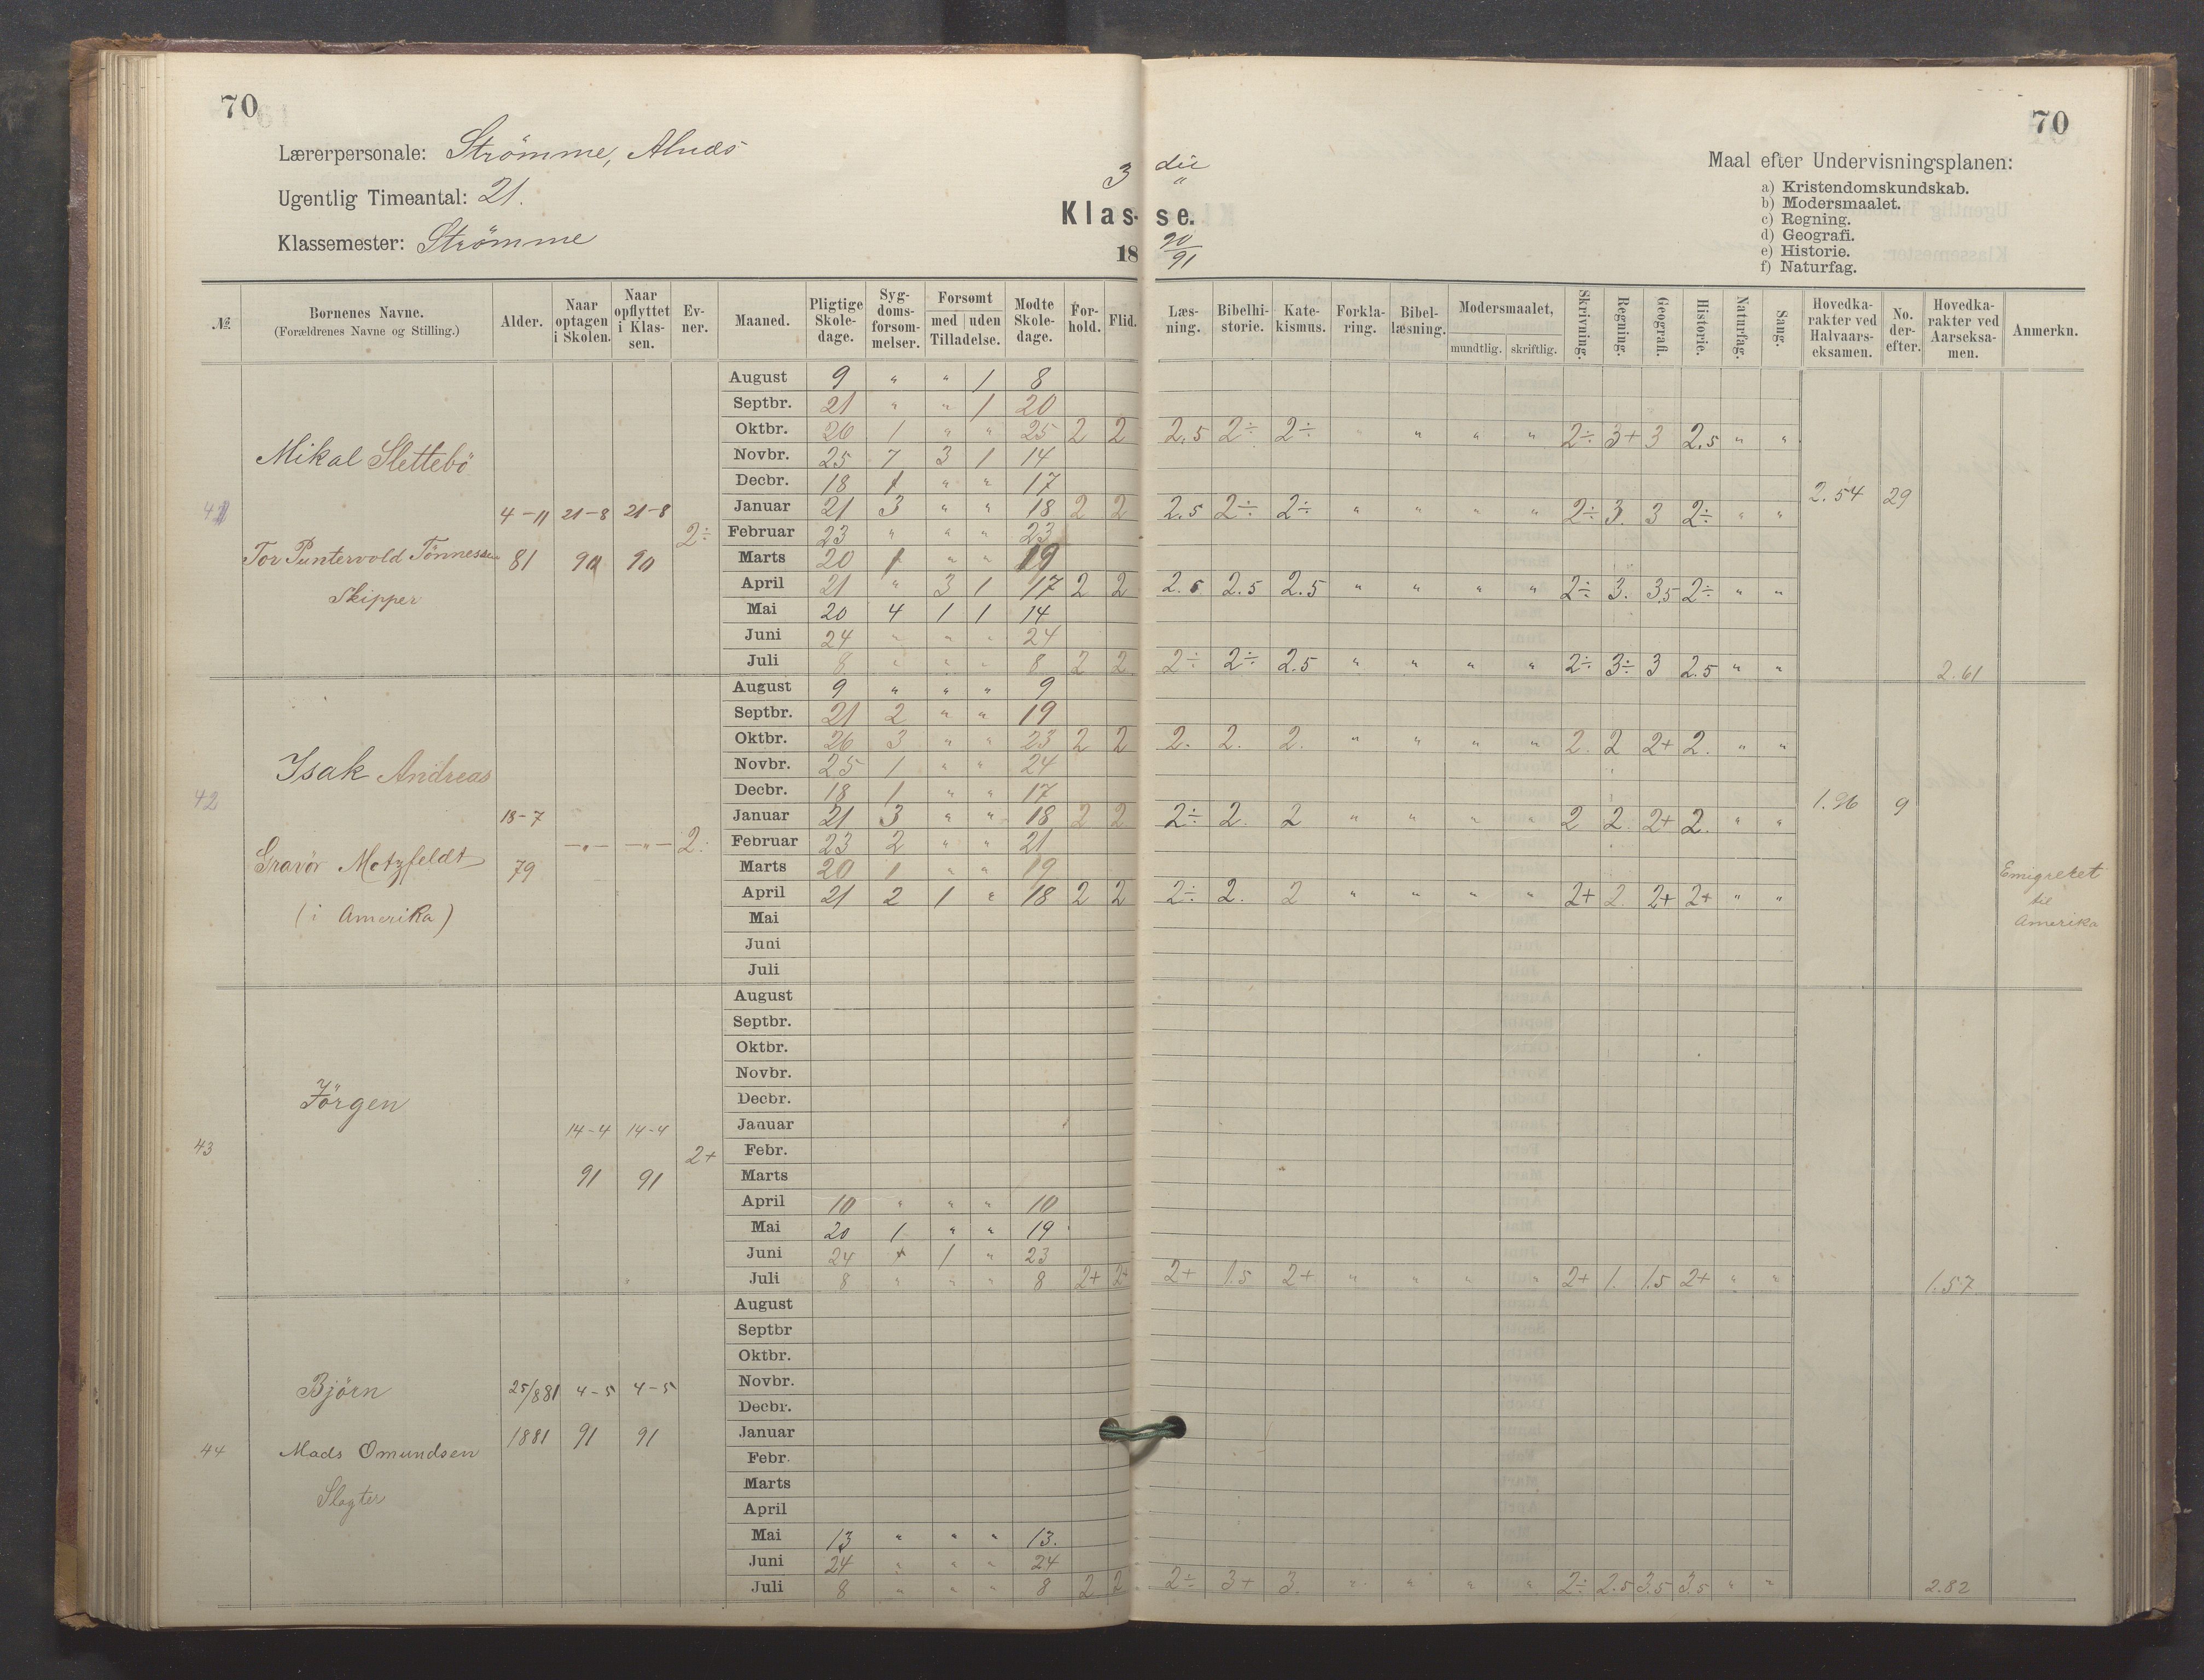 70
70
Lærerpersonale: Strömme, Alnæs
Ugentlig Timeantal: 21.
Klassemester: Strömme
3 die
Klas- se.
18 90/91
Maal efter Undervisningsplanen:
a) Kristendomskundskab.
b) Modersmaalet.
c) Regning.
d) Geografi.
e) Historie.
f) Naturfag.
№ Bornenes Navne. (Forældrenes Navne og Stilling.) Alder. Naar optagen i Skolen. Naar opflyttet i Klas-sen. Ev-ner. Maaned. Pligtige Skole-dage. Syg-doms-forsøm-melser. Forsømt med uden Tilladelse. Mødte Skole-dage. For-hold. Flid. Læs-ning. Bibelhi-storie. Kate-kismus. Forkla-ring. Bibel-læsning. Modersmaalet, mundtlig. skriftlig. Skrivning. Regning. Geografi. Historie. Naturfag. Sang. Hovedka-rakter ved Halvaars-eksamen. No. der-efter. Hovedka-rakter ved Aarseksa-men. Anmerkn.
41
Mikal Slettebö
Tor Puntervold Tönnessen
Skipper
4-11 81
21-8 90
21-8 90
2÷
August 9 " " 1 8
Septbr. 21 " " 1 20
Oktbr. 26 1 " " 25 2 2 2.5 2÷ 2÷ " " " " 2÷ 3+ 3 2.5 " "
Novbr. 25 7 3 1 14
Decbr. 18 1 " " 17
Januar 21 3 " " 18 2 2 2.5 2÷ 2÷ " " " " 2÷ 3. 3 2÷ " " 2.54 29
Februar 23 " " " 23
Marts 20 1 " " 19
April 21 " 3 1 17 2 2 2.5 2.5 2.5 " " " " 2÷ 3. 3.5 2÷ " "
Mai 20 4 1 1 14
Juni 24 " " " 24
Juli 8 " " " 8 2 2 2÷ 2÷ 2.5 " " " " 2÷ 3÷ 3 2.5 " " 2.61
42
Isak Andreas
Gravör Metzfeldt
(i Amerika)
18-7 79
-"- -"- 2.
August 9 " " " 9
Septbr. 21 2 " " 19
Oktbr. 26 3 " " 23 2 2 2. 2. 2. " " " " 2. 2 2+ 2. " "
Novbr. 25 1 " " 24
Decbr. 18 1 " " 17
Januar 21 3 " " 18 2 2 2÷ 2. 2 " " " " 2 2. 2+ 2. " " 1.96 9
Februar 23 2 " " 21
Marts 20 1 " " 19
April 21 2 1 " 18 2 2 2÷ 2. 2 " " " " 2+ 2. 2+ 2+ " "
Mai
Juni
Juli
Emigreret
til
Amerika
43
Jörgen
14-4 91
14-4 91
2+
August
Septbr.
Oktbr.
Novbr.
Decbr.
Januar
Febr.
Marts
April 10 " " " 10
Mai 20 1 " " 19
Juni 24 1 " 23
Juli 8 " " " 8 2+ 2+ 2+ 1.5 2+ " " " " 2+ 1. 1.5 2+ " " 1.57
44
Björn
Mads Omundsen
Slagter
25/8 81 1881
4-5 91
4-5 91
August
Septbr
Oktbr.
Novbr.
Decbr.
Januar
Febr.
Marts
April
Mai 13 " " " 13.
Juni 24 " " " 24
Juli 8 " " " 8 2 2 2÷ 3+ 3. " " " " 2÷ 2.5 3.5 3.5 " " 2.82